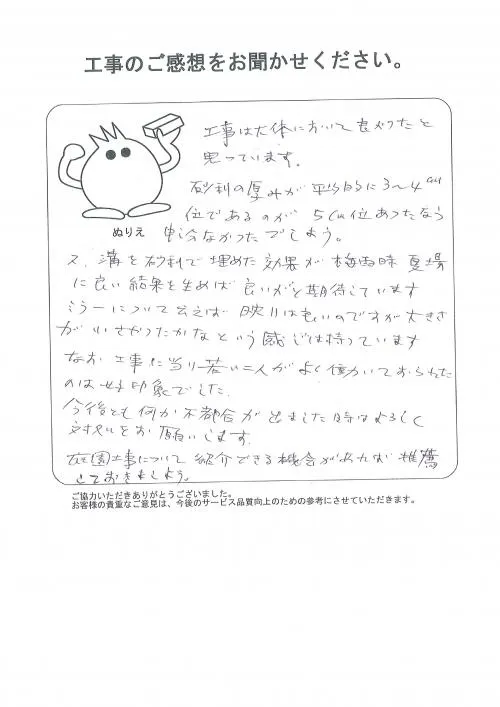 工事のご感想をお聞かせください。
工事は大体において良かったと
思っています。
砂利の厚みが平均的に3〜4cm
位であるのが5cm位あったなら
ぬりえ
申分なかったでしょう。
又、溝を砂利で埋めた効果が梅雨時 夏場
に良い結果を生めば良いがと期待しています
ミラーについて云えば 映りは良いのですが大きさ
が小さかったかなという感じは持っています
なお 工事に当り若い二人がよく働いておられた
のは好印象でした。
今後とも何か不都合が出ました時はよろしく
対処をお願いします。
庭園工事について 紹介できる機会があれば 推薦
しておきましょう。
ご協力いただきありがとうございました。
お客様の貴重なご意見は、今後のサービス品質向上のための参考にさせていただきます。